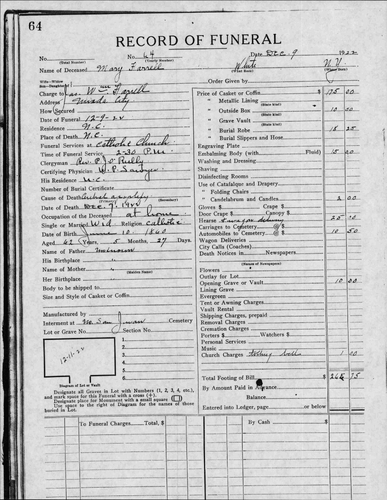 64
RECORD OF FUNERAL
No. No. 64 Date Dec 9 1922
(Total Number) (Yearly Number)
Name of Deceased Mary Farrell White N.Y.
Charge to Wm Farrell Order Given by
Address Nevada City
How Secured
Date of Funeral 12-9-22
Residence N.C.
Place of Death N.C.
Funeral Services at Catholic Church
Time of Funeral Service 2-30 P.M.
Clergyman Rev. P. O'Reilly
Certifying Physician W.P. Sawyer
His Residence N.C.
Number of Burial Certificate
Cause of Death
Date of Death Dec. 7, 1922
Occupation of the Deceased at home
Single or Married Wid Religion Catholic
Date of Birth June 10 1860
Aged 62 Years, 5 Months, 27 Days
Name of Father
His Birthplace
Name of Mother
(Maiden Name)
Her Birthplace
Body to be shipped to
Size and Style of Casket or Coffin
Manufactured by
Interment at Cemetery
Lot or Grave No. Section No.
12-11-22
1.
2.
3.
4.
5.
6.
Diagram of Lot or Vault
Designate all Graves in Lot with Numbers (1, 2, 3, 4, etc.),
and mark space for this Funeral with a cross (+).
Designate place for Monument with a small square
Use space to right of Diagram for the names of those
buried in Lot.
Price of Casket or Coffin $ 175 00
" Metallic Lining
" Outside Box 10 00
" Grave Vault
" Burial Robe 18 25
" Burial Slippers and Hose
Engraving Plate
Embalming Body (with Fluid) 15 00
Washing and Dressing
Shaving
Disinfecting Rooms
Use of Catafalque and Drapery
" Folding Chairs
" Candelabrum and Candles 2 00
Gloves $ Crape $
Door Crape $ Canopy $
Hearse
Carriages to Cemetery
Automobiles to Cemetery 10 50
Wagon Deliveries
City Calls Country Calls
Death Notices in Newspapers
(Names of Newspapers)
Flowers
Outlay for Lot
Opening Grave or Vault 10 00
Lining Grave
Evergreen
Tent or Awning Charges
Vault Rental
Shipping Charges, prepaid
Removal Charges
Cremation Charges
Porters $ Watchers $
Personal Services
Music
Church Charges tolling bells 1 00
Total Footing of Bill $
By Amount Paid in Advance
Balance
Entered into Ledger, page or below
To Funeral Charges, Total $ By Cash $